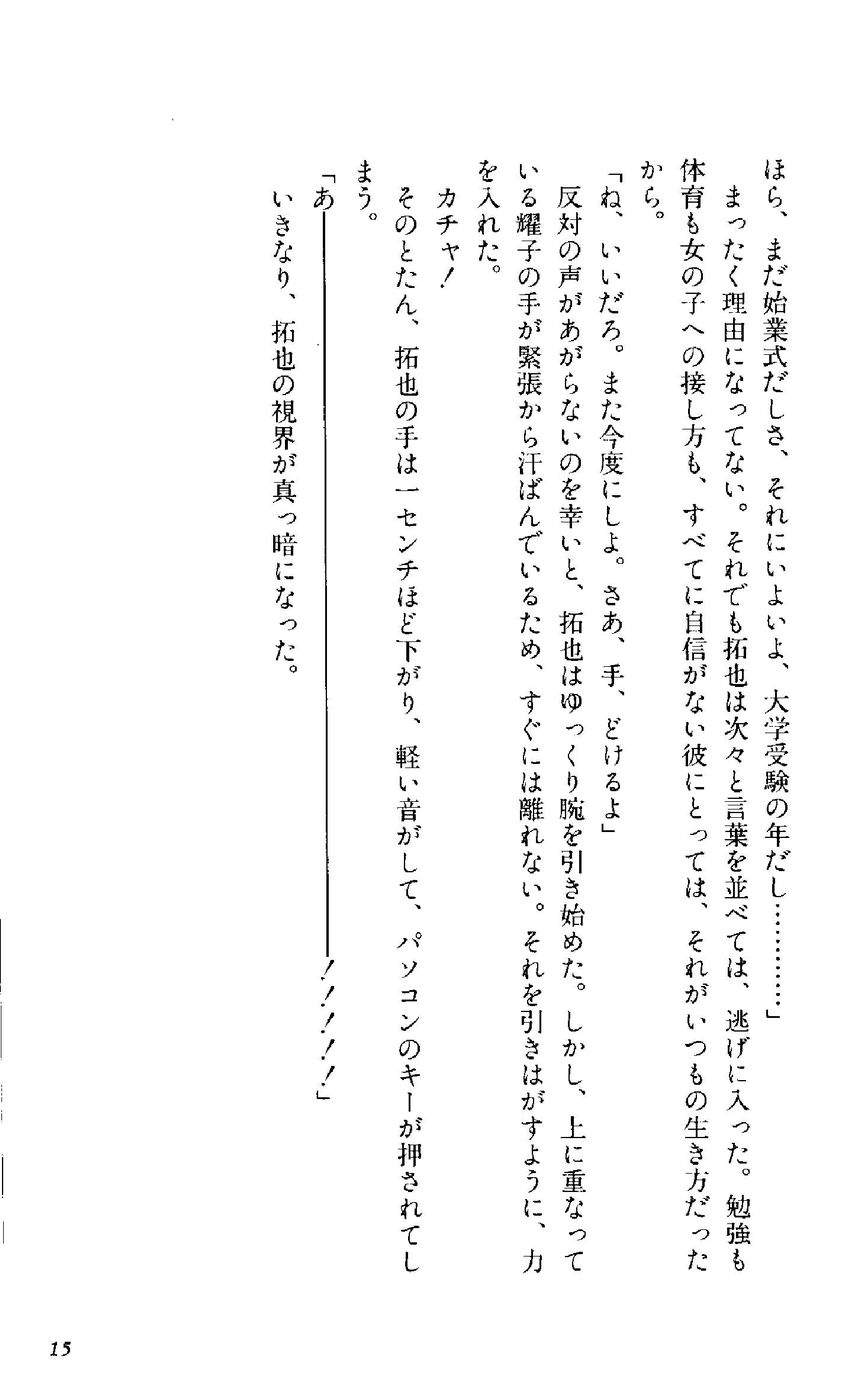 ほら、まだ始業式だしさ、それにいよいよ、大学受験の年だし…………」
　まったく理由になってない。それでも拓也は次々と言葉を並べては、逃げに入った。勉強も
体育も女の子への接し方も、すべてに自信がない彼にとっては、それがいつもの生き方だった
から。
「ね、いいだろ。また今度にしよ。さあ、手、どけるよ」
　反対の声があがらないのを幸いと、拓也はゆっくり腕を引き始めた。しかし、上に重なって
いる耀子の手が緊張から汗ばんでいるため、すぐには離れない。それを引きはがすように、力
を入れた。
　カチャ！
　そのとたん、拓也の手は一センチほど下がり、軽い音がして、パソコンのキーが押されてし
まう。
「あ――――――――――――――！！！！！」
　いきなり、拓也の視界が真っ暗になった。
15